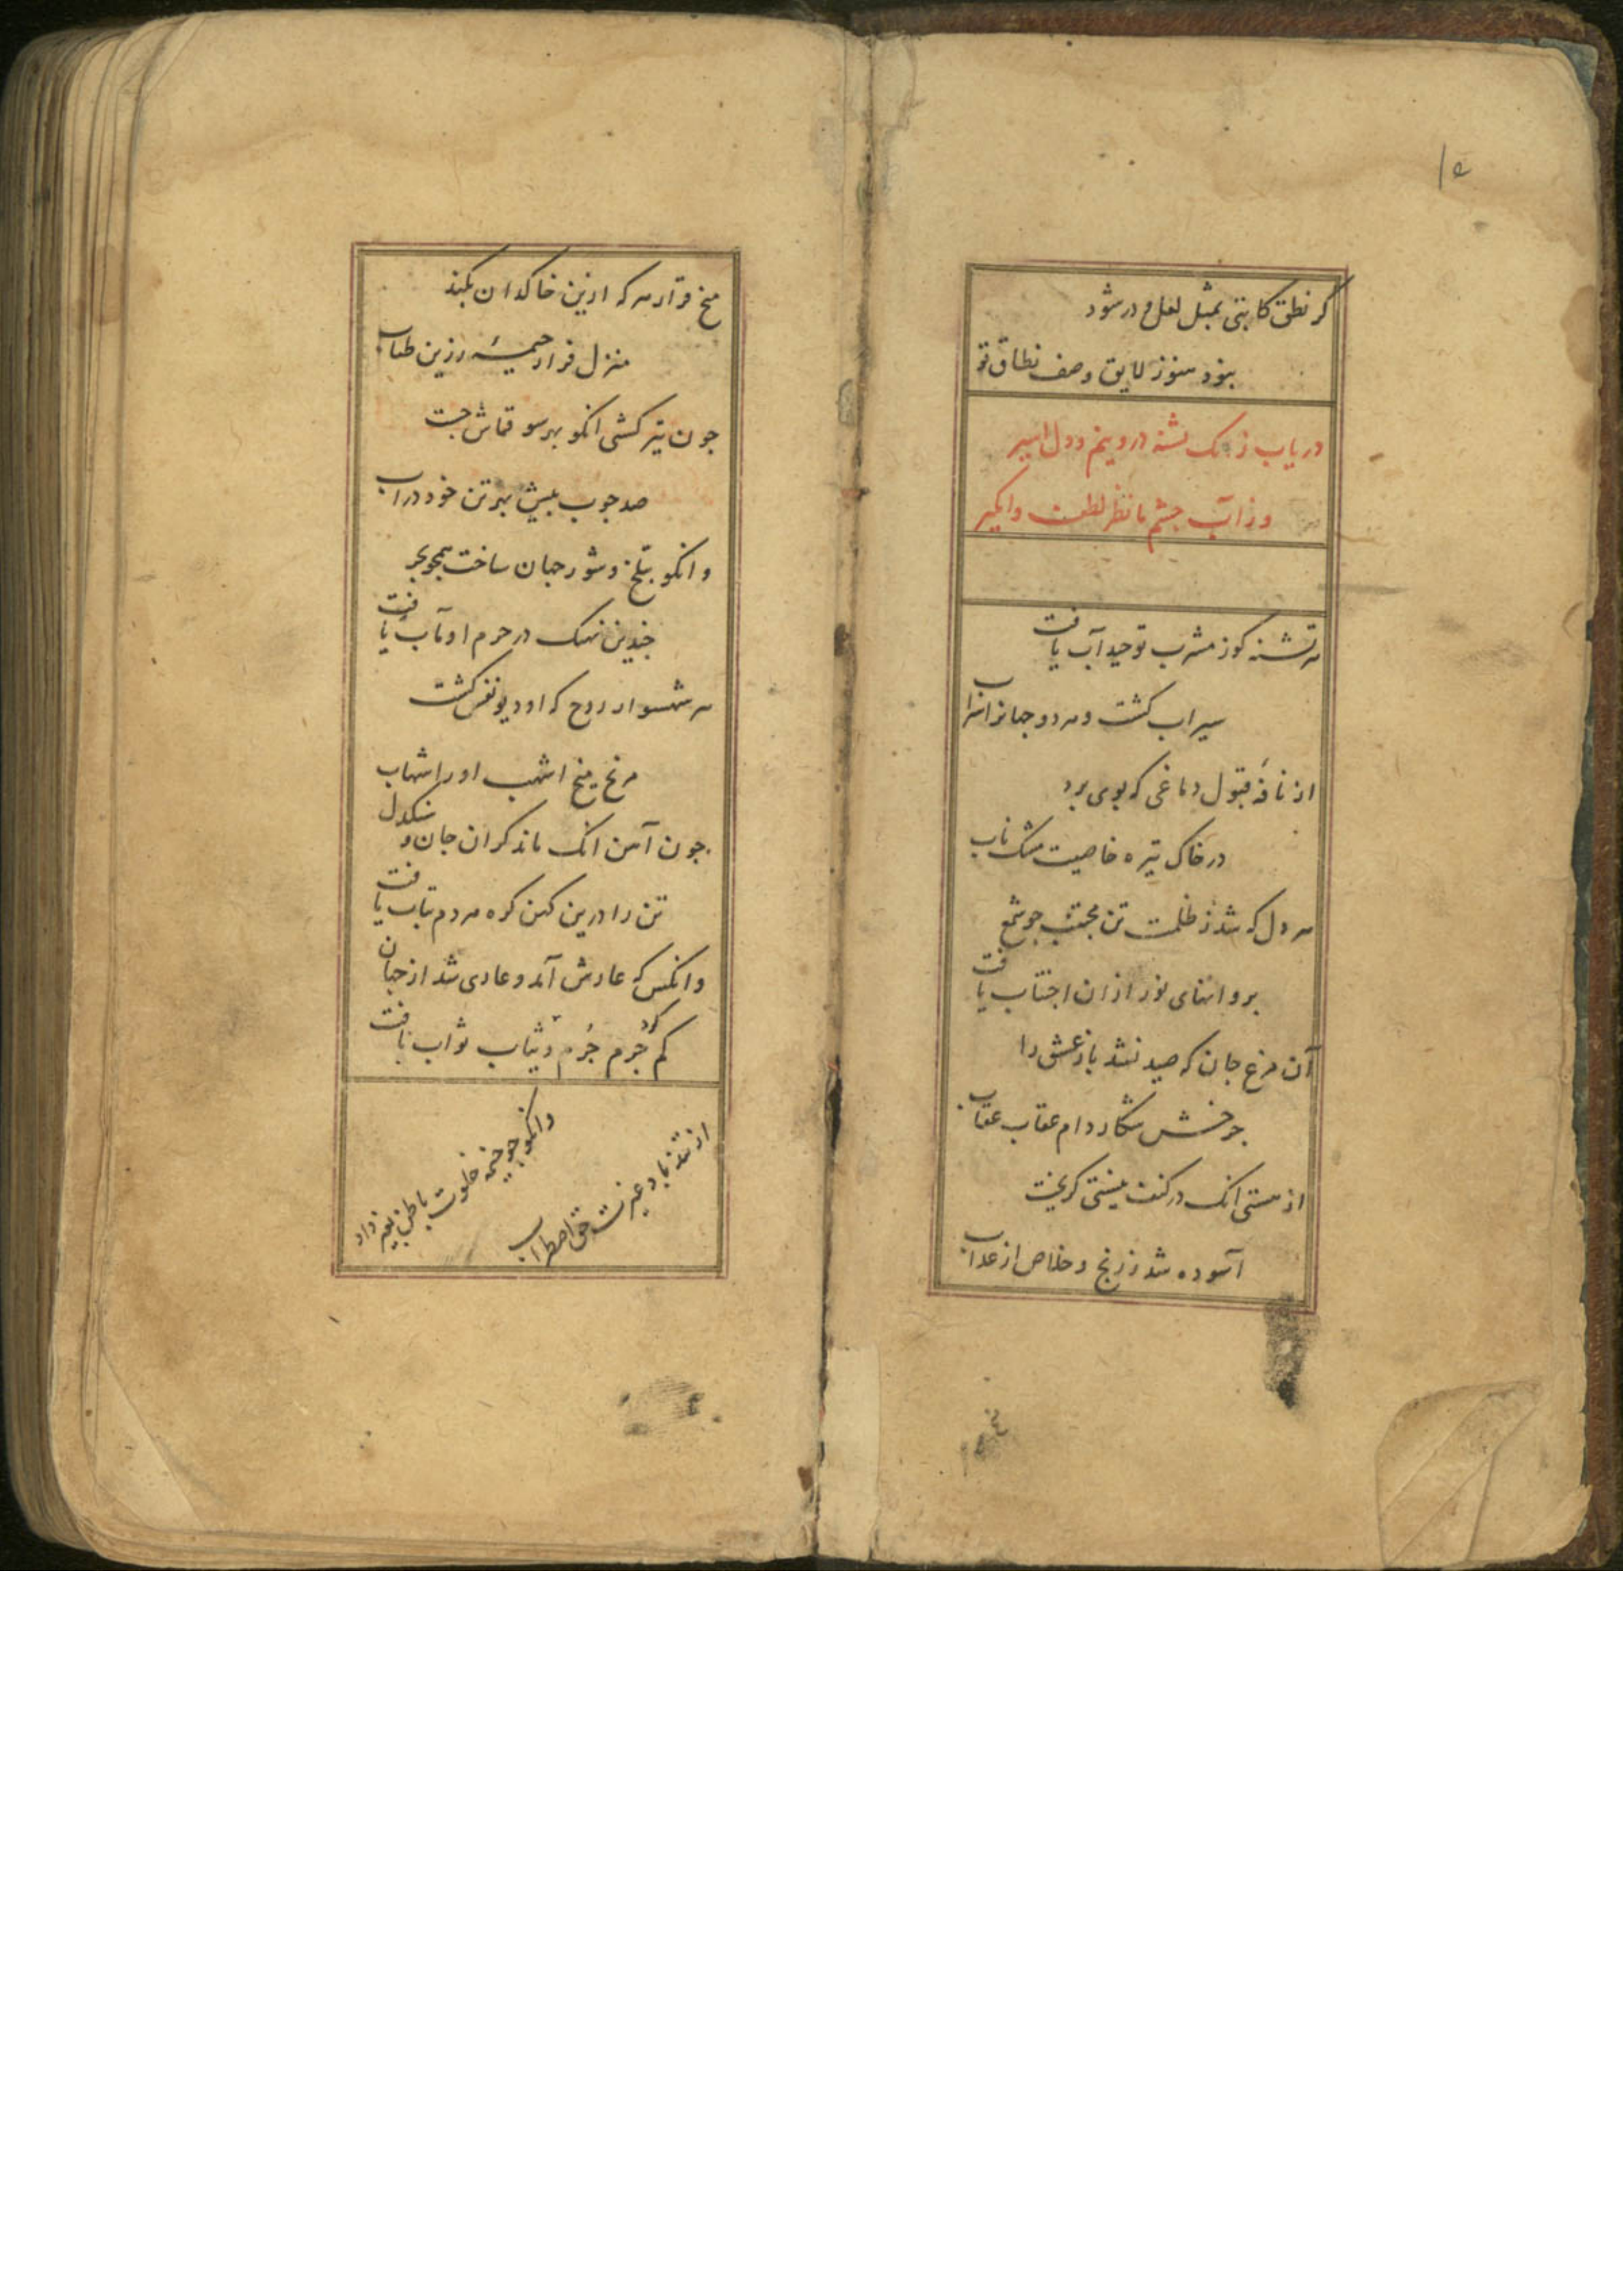 ۱۵
گر نطق کاتبی بمثل لعل و در شود
نبود هنوز لایق وصف نطاق تو
دریاب زانک تشنه درونیم و دل اسیر
وز آب چشم ما نظر لطف وامگیر
هر تشنه کوز مشرب توحید آب یافت
سیراب گشت و هر دو جهانرا سراب
از نافهٔ قبول دماغی که بوی برد
در خاک تیره خاصیت مشک ناب
هر دل که شد ز ظلمت تن مجتنب چو شمع
پروانهای نور ازان اجتناب یافت
آن مرغ جان که صید نشد باز عشق را
چرخش شکار دام عقاب عقاب
از هستی انک در کنف نیستی گریخت
آسوده شد ز رنج و خلاص از عذاب
میخ قرار هر که ازین خاکدان بکند
منزل فراز خیمهٔ زرین طناب
چون تیر کشتی انکو بهر سو قماش جست
صد چوب بیش بهر تن خود در آب
وانکو بتلخ و شور جهان ساخت همچو بحر
چندین نهنک در حرم او مآب یافت
هر شهسوار روح که او دیو نفس کشت
مریخ میخ اشهب او را شهاب
چون آهن انک ماند گران جان و سنگدل
تن را درین کهن کره هر دم بتاب یافت
وانکس که عارش آمد و عاری شد از جهان
کم کرد جرم جرم و ثیاب ثواب یافت
وانکو چو خیمه خلوت باطن بغیر داد
از تند باد غیرت حق اضطراب